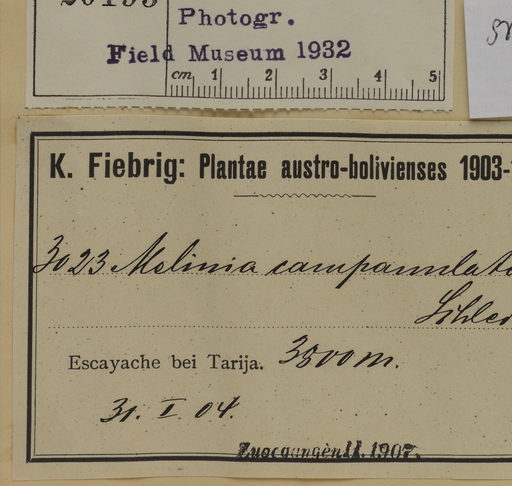 Photogr.
Field Museum 1932
cm 1 2 3 4 5
K. Fiebrig: Plantae austro-bolivienses 1903-
3023 Melinia campanulata
Escayache bei Tarija. 3500m.
31. I. 04.
Zugegangen II. 1907.